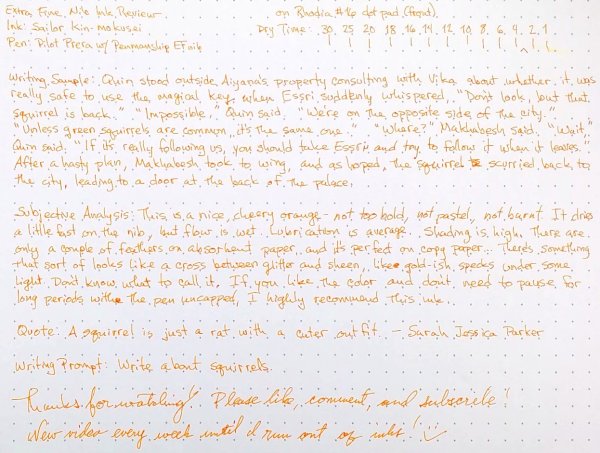 Extra Fine Nib Ink Review
on Rhodia #16 dot pad (front)
Ink: Sailor Kin-mokusei
Dry Time: 30 25 20 18 16 14 12 10 8 6 4 2 1
Pen: Pilot Prera w/ Penmanship EF nib
Writing Sample: Quin stood outside Aiyana's property consulting with Vika about whether it was
really safe to use the magical key, when Essri suddenly whispered, "Don't look, but that
squirrel is back." "Impossible," Quin said. "We're on the opposite side of the city."
"Unless green squirrels are common, it's the same one." "Where?" Makhabesh said. "Wait,"
Quin said. "If it's really following us, you should take Essri and try to follow it when it leaves."
After a hasty plan, Makhabesh took to wing, and as hoped, the squirrel scurried back to
the city, leading to a door at the back of the palace.
Subjective Analysis: This is a nice, cheery orange - not too bold, not pastel, not burnt. It dries
a little fast on the nib, but flow is wet. Lubrication is average. Shading is high. There are
only a couple of feathers on absorbent paper, and it's perfect on copy paper. There's something
that sort of looks like a cross between glitter and sheen, like gold-ish specks under some
light. Don't know what to call it. If you like the color and don't need to pause for
long periods with the pen uncapped, I highly recommend this ink.
Quote: A squirrel is just a rat with a cuter outfit. - Sarah Jessica Parker
Writing Prompt: Write about squirrels.
Thanks for watching! Please like, comment, and subscribe!
New video every week until I run out of inks! :)